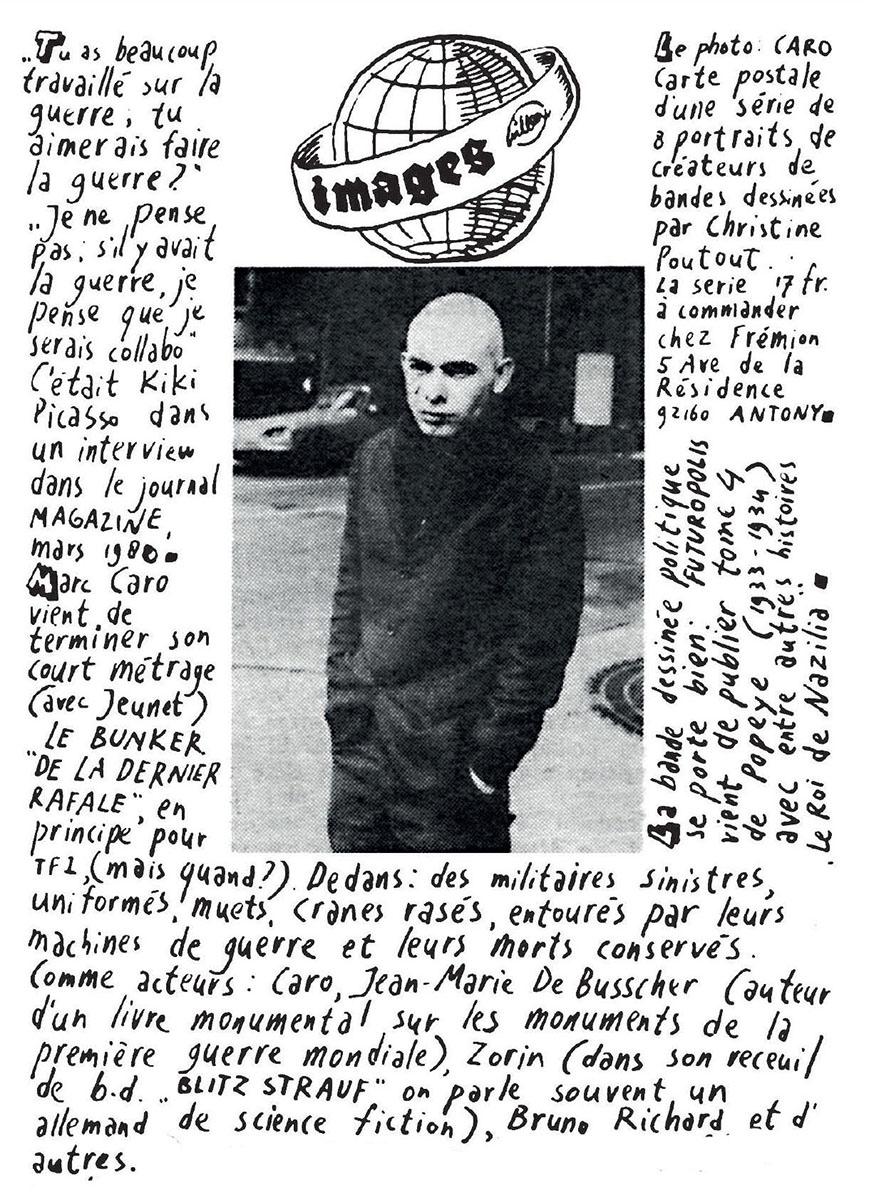 images
willem
„Tu as beaucoup
travaillé sur la
guerre; tu
aimerais faire
la guerre?"
„Je ne pense
pas; s'il y avait
la guerre, je
pense que je
serais collabo"
C'était Kiki
Picasso dans
un interview
dans le journal
MAGAZINE,
mars 1980.
Marc Caro
vient de
terminer son
court métrage
(avec Jeunet)
„LE BUNKER
DE LA DERNIER
RAFALE", en
principe pour
TF1, (mais quand?). Dedans: des militaires sinistres,
uniformés, muets, cranes rasés, entourés par leurs
machines de guerre et leurs morts conservés.
Comme acteurs: Caro, Jean-Marie De Busscher (auteur
d'un livre monumental sur les monuments de la
première guerre mondiale), Zorin (dans son receuil
de b.d. „BLITZ STRAUF" on parle souvent un
allemand de science fiction), Bruno Richard et d'
autres.
Le photo: CARO
Carte postale
d'une série de
8 portraits de
créateurs de
bandes dessinées
par Christine
Poutout.
La serie 17 fr.
à commander
chez Frémion
5 Ave de la
Résidence
92160 ANTONY
La bande dessinée politique
se porte bien: FUTUROPOLIS
vient de publier tome 4
de Popeye (1933-1934)
avec entre autres histoires
Le Roi de Nazilia